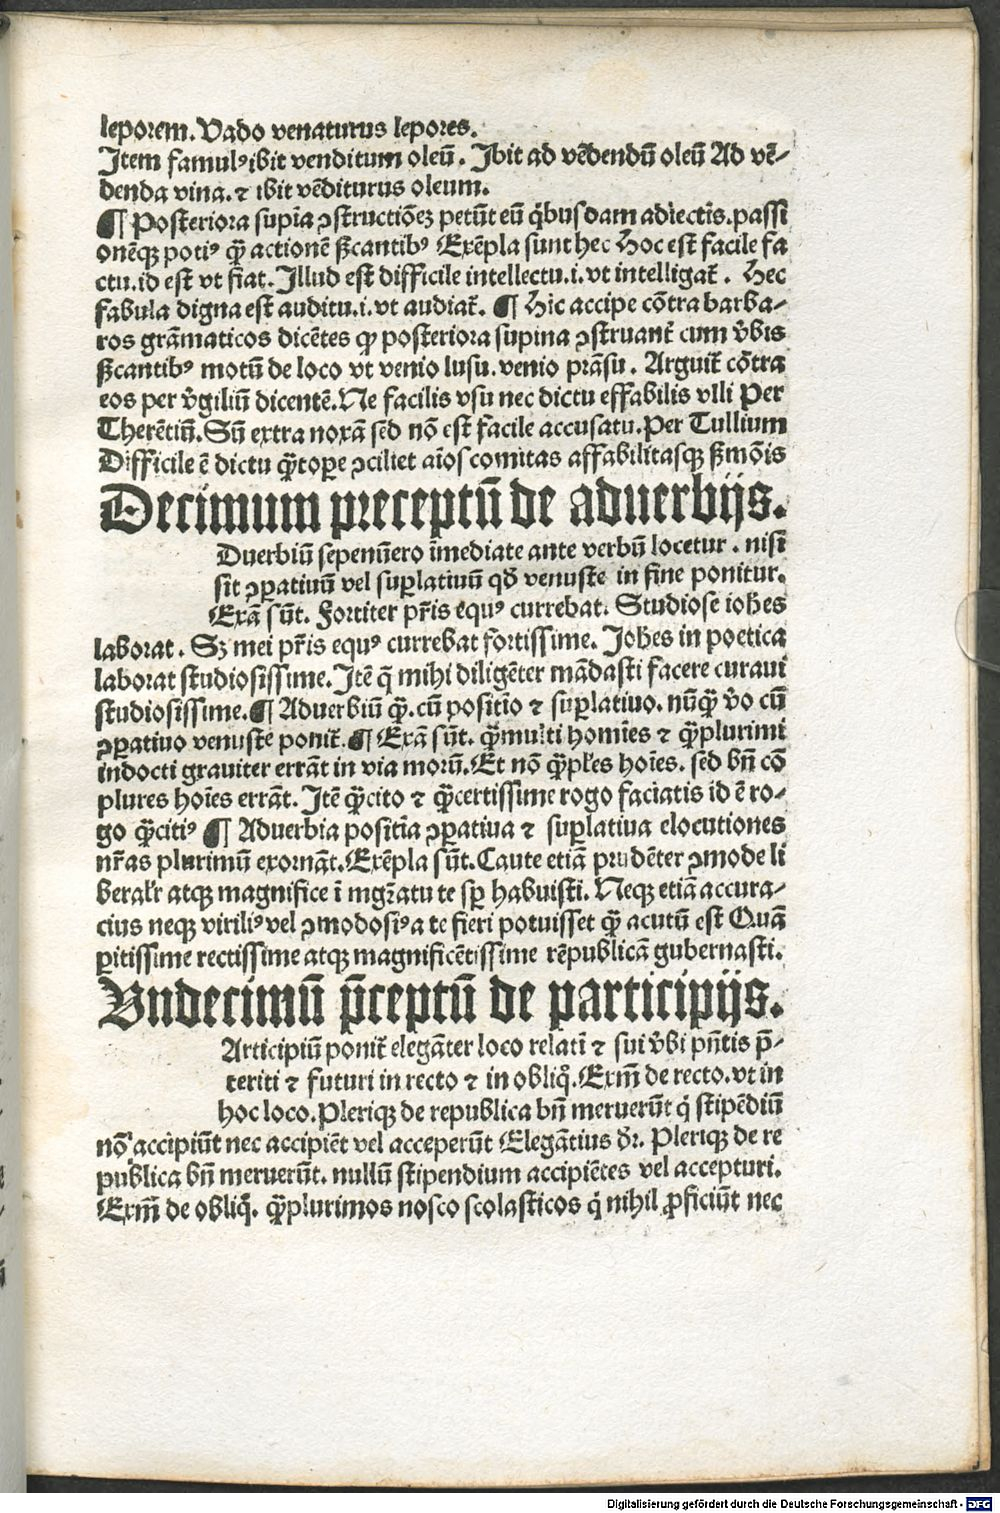 leporem. Vado venaturus lepores.
Item famulꝰ ibit venditum oleū. Ibit ad vēdendū oleū Ad vē-
denda vina. ⁊ ibit vēditurus oleum.
¶ Posteriora supīa ꝯstructiōeꝫ petūt eū q̇busdam adiectīs. passi
onēqꝫ potiꝰ q̄ꝫ actionē ẜcantibꝰ Exēpla sunt hec Hoc est facile fa
ctu. id est vt fiat. Illud est difficile intellectu. i. vt intelligat᷑. Hec
fabula digna est auditu. i. vt audiat᷑. ¶ Hic accipe cōtra barba-
ros grāmaticos dicētes ꝙ posteriora supina ꝯstruant᷑ cum v̄bis
ẜcantibꝰ motū de loco vt venio lusu. venio prāsu. Arguit᷑ cōtra
eos per v̄giliū dicentē. Ne facilis vsu nec dictu effabilis vlli Per
Therētiū. Sū extra noxā sed nō est facile accusatu. Per Tullium
Difficile ē dictu q̄ꝫtoꝑe ꝯciliet aīos comitas affabilitasqꝫ ẜmōis
Decimum preceptū de aduerbijs.
Duerbiū sepenūero īmediate ante verbū locetur. nisi
sit ꝯꝑatiuū vel suꝑlatiuū qđ venuste in fine ponitur.
Exā sūt. Fortiter pr̄is equꝰ currebat. Studiose ioh̄es
laborat. Sꝫ mei pr̄is equꝰ currebat fortissime. Ioh̄es in poetica
laborat studiosissime. Itē q̄ mihi diligēter mādasti facere curaui
studiosissime. ¶ Aduerbiū q̄ꝫ. cū positīo ⁊ suꝑlatiuo. nūq̄ꝫ v̄o cū
ꝯꝑatiuo venuste ponit᷑. ¶ Exā sūt. q̄ꝫmulti homīes ⁊ q̄ꝫplurimi
indocti grauiter errāt in via morū. Et nō q̄ꝫpl̄es hoīes. sed bn̄ cō
plures hoīes errāt. Itē q̄ꝫcito ⁊ q̄ꝫcertissime rogo faciatis id ē ro-
go q̄ꝫcitiꝰ ¶ Aduerbia positīa ꝯꝑatiua ⁊ suꝑlatiua elocutiones
nr̄as plurimū exornāt. Exēpla sūt. Caute etiā prudēter ꝯmode li
beral̄r atqꝫ magnifice ī mgr̄atu te sꝑ habuisti. Neqꝫ etiā accura-
cius neqꝫ viriliꝰ vel ꝯmodosiꝰ a te fieri potuisset q̄ꝫ acutū est Quā
ꝑitissime rectissime atqꝫ magnificētissime rēpublicā gubernasti.
Vndecimū p̄ceptū de participijs.
Articipiū ponit᷑ elegāter loco relati ⁊ sui v̄bi pn̄tis p̄-
teriti ⁊ futuri in recto ⁊ in obliq̊. Exm̄ de recto. vt in
hoc loco. Pleriqꝫ de republica bn̄ meruerūt q̇ stipēdiū
nō accipiūt nec accipiēt vel acceperūt Elegātius dr̄. Pleriqꝫ de re
publica bn̄ meruerūt. nullū stipendium accipiētes vel accepturi.
Exm̄ de obliq̊. q̄ꝫplurimos nosco scolasticos q̇ nihil ꝓficiūt nec
Digitalisierung gefördert durch die Deutsche Forschungsgemeinschaft - DFG